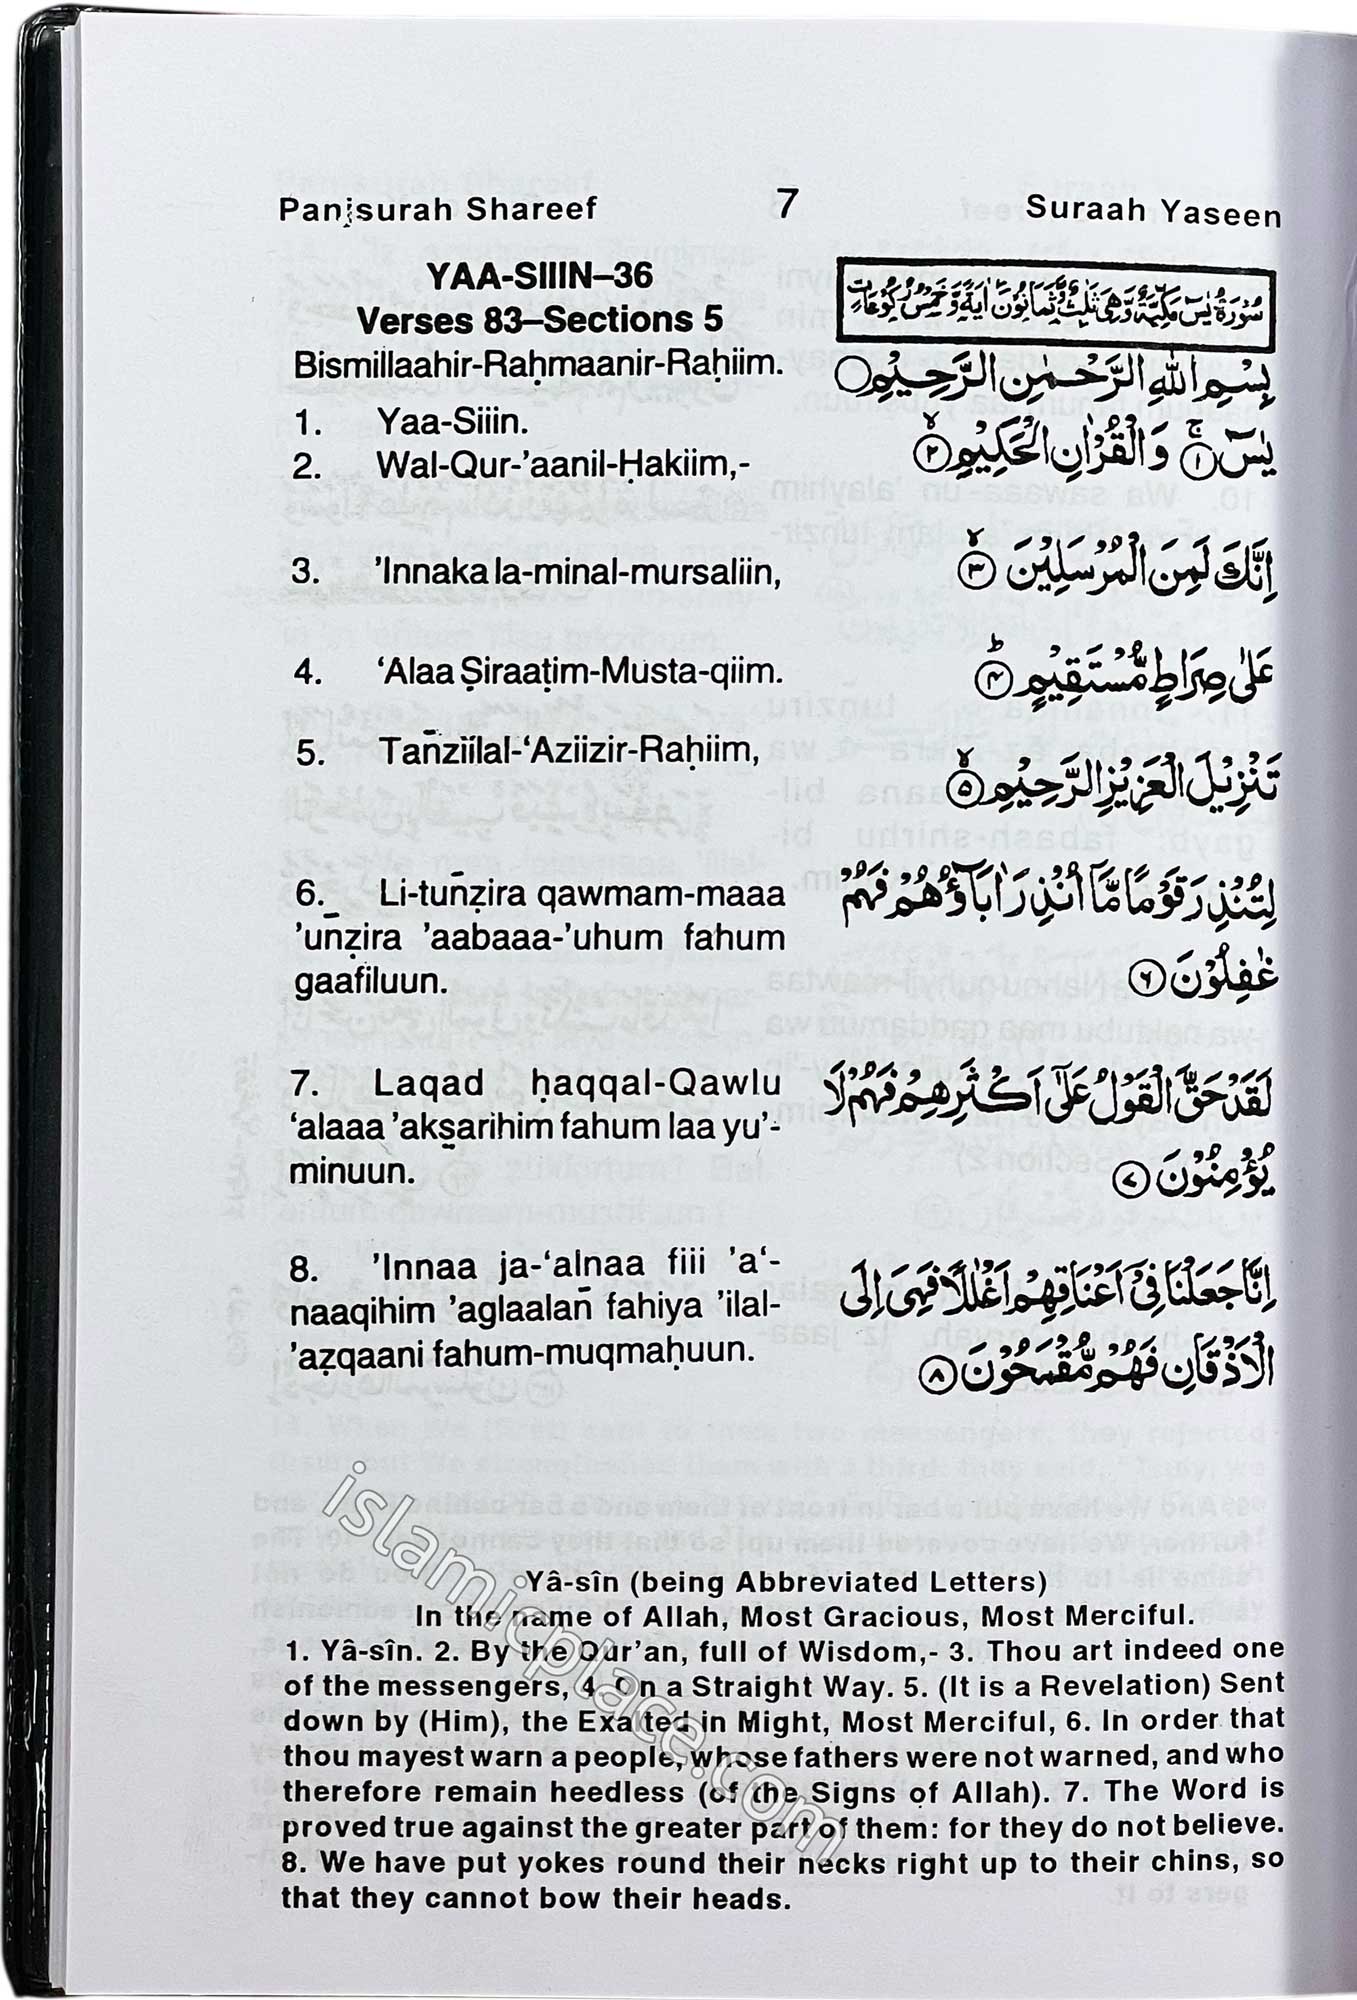 Panjsurah Shareef 7 Suraah Yaseen
YAA-SIIIN–36
Verses 83–Sections 5
Bismillaahir-Raḥmaanir-Raḥiim.
1. Yaa-Siiin.
2. Wal-Qur-’aanil-Ḥakiim,-
3. ’Innaka la-minal-mursaliin,
4. ‘Alaa Ṣiraaṭim-Musta-qiim.
5. Tañziilal-‘Aziizir-Raḥiim,
6. Li-tuñẓira qawmam-maaa
’uñẓira ’aabaaa-’uhum fahum
gaafiluun.
7. Laqad ḥaqqal-Qawlu
‘alaaa ’aks̤arihim fahum laa yu’-
minuun.
8. ’Innaa ja-‘alnaa fiii ’a‘-
naaqihim ’aglaalañ fahiya ’ilal-
’aẓqaani fahum-muqmaḥuun.
سُوْرَةُ يٰسٓ مَكِّيَّةٌ وَّهِيَ ثَلٰثٌ وَّثَمَانُوْنَ اٰيَةً وَّخَمْسُ رُكُوْعَاتٍ
بِسْمِ اللّٰهِ الرَّحْمٰنِ الرَّحِيْمِ
يٰسٓ ۚ﴿۱﴾ وَالْقُرْاٰنِ الْحَكِيْمِ ۙ﴿۲﴾
اِنَّكَ لَمِنَ الْمُرْسَلِيْنَ ۙ﴿۳﴾
عَلٰى صِرَاطٍ مُّسْتَقِيْمٍ ؕ﴿۴﴾
تَنْزِيْلَ الْعَزِيْزِ الرَّحِيْمِ ۙ﴿۵﴾
لِتُنْذِرَ قَوْمًا مَّآ اُنْذِرَ اٰبَآؤُهُمْ فَهُمْ
غٰفِلُوْنَ ﴿۶﴾
لَقَدْ حَقَّ الْقَوْلُ عَلٰٓى اَكْثَرِهِمْ فَهُمْ لَا
يُؤْمِنُوْنَ ﴿۷﴾
اِنَّا جَعَلْنَا فِيْٓ اَعْنَاقِهِمْ اَغْلٰلًا فَهِيَ اِلَى
الْاَذْقَانِ فَهُمْ مُّقْمَحُوْنَ ﴿۸﴾
Yâ-sîn (being Abbreviated Letters)
In the name of Allah, Most Gracious, Most Merciful.
1. Yâ-sîn. 2. By the Qur’an, full of Wisdom,- 3. Thou art indeed one
of the messengers, 4. On a Straight Way. 5. (It is a Revelation) Sent
down by (Him), the Exalted in Might, Most Merciful, 6. In order that
thou mayest warn a people, whose fathers were not warned, and who
therefore remain heedless (of the Signs of Allah). 7. The Word is
proved true against the greater part of them: for they do not believe.
8. We have put yokes round their necks right up to their chins, so
that they cannot bow their heads.
islamicplace.com